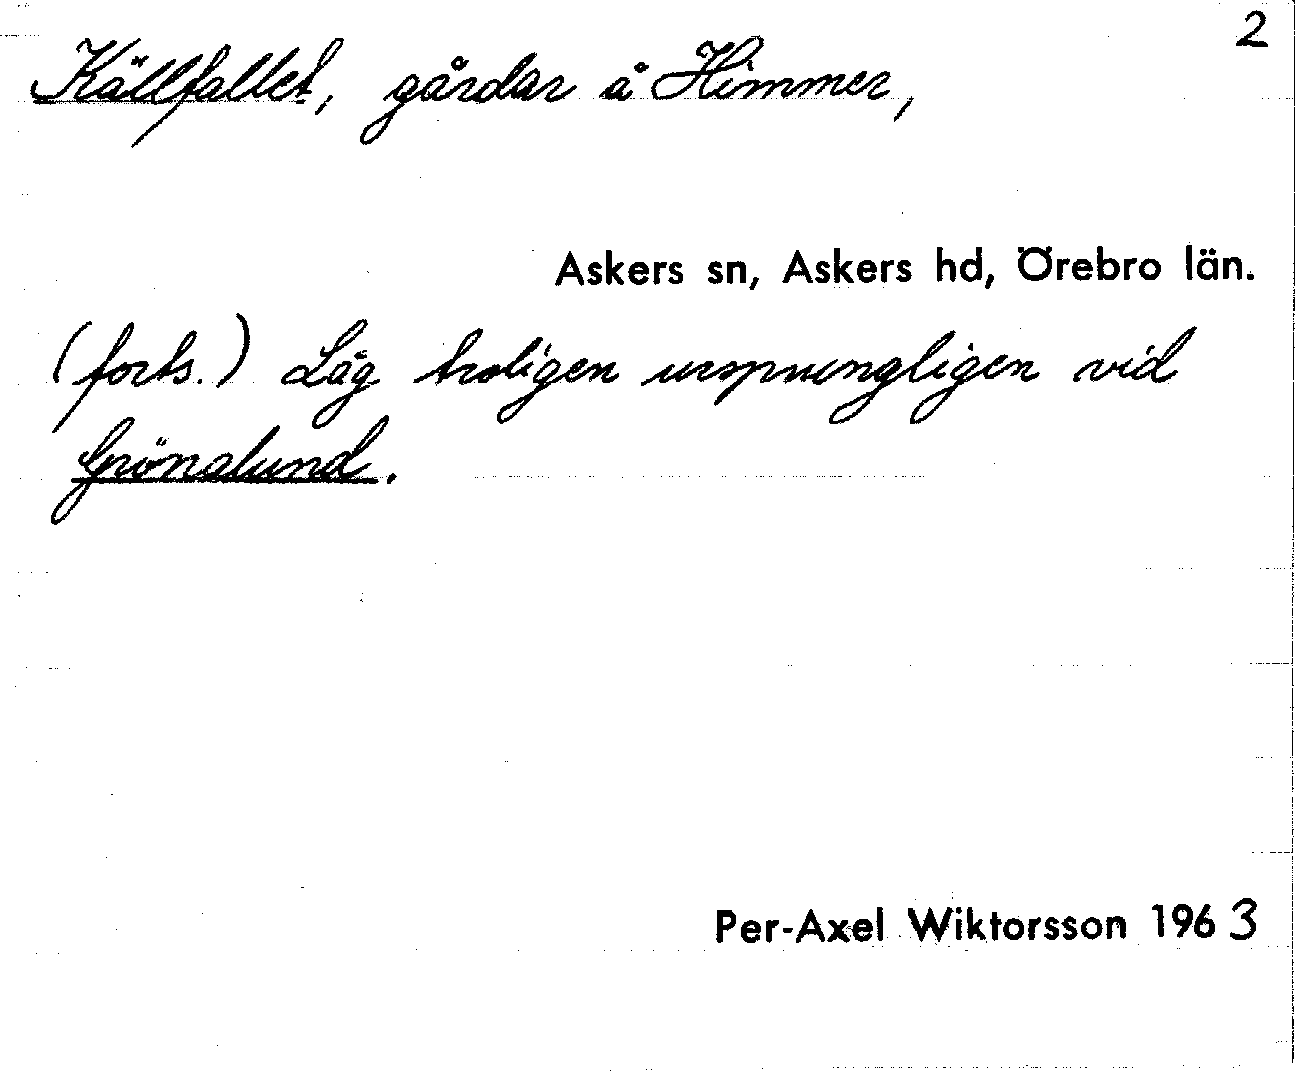 2
Källfallet, gårdar å Himmer,
Askers sn, Askers hd, Örebro län.
(forts.) Låg troligen ursprungligen vid
Grönalund.
Per-Axel Wiktorsson 1963